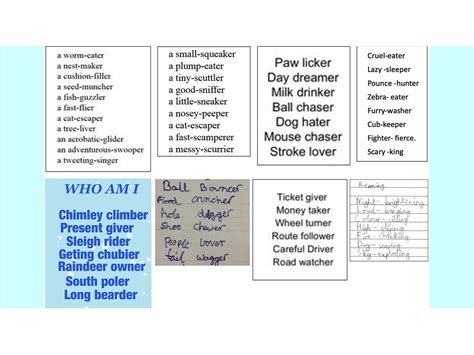 a worm-eater
a nest-maker
a cushion-filler
a seed-muncher
a fish-guzzler
a fast-flier
a cat-escaper
a tree-liver
an acrobatic-glider
an adventurous-swooper
a tweeting-singer
a small-squeaker
a plump-eater
a tiny-scuttler
a good-sniffer
a little-sneaker
a nosey-peeper
a cat-escaper
a fast-scamperer
a messy-scurrier
Paw licker
Day dreamer
Milk drinker
Ball chaser
Dog hater
Mouse chaser
Stroke lover
Cruel-eater
Lazy -sleeper
Pounce -hunter
Zebra- eater
Furry-washer
Cub-keeper
Fighter- fierce.
Scary -king
WHO AM I
Chimley climber
Present giver
Sleigh rider
Geting chubier
Raindeer owner
South poler
Long bearder
Ball Bouncer
Food cruncher
hole digger
Shoe chewer
People lover
tail wagger
Ticket giver
Money taker
Wheel turner
Route follower
Careful Driver
Road watcher
Kenning
Night- brightening
Loud- banging
Colour-
High-
Fire-
Dog- scaring
Sky-exploding